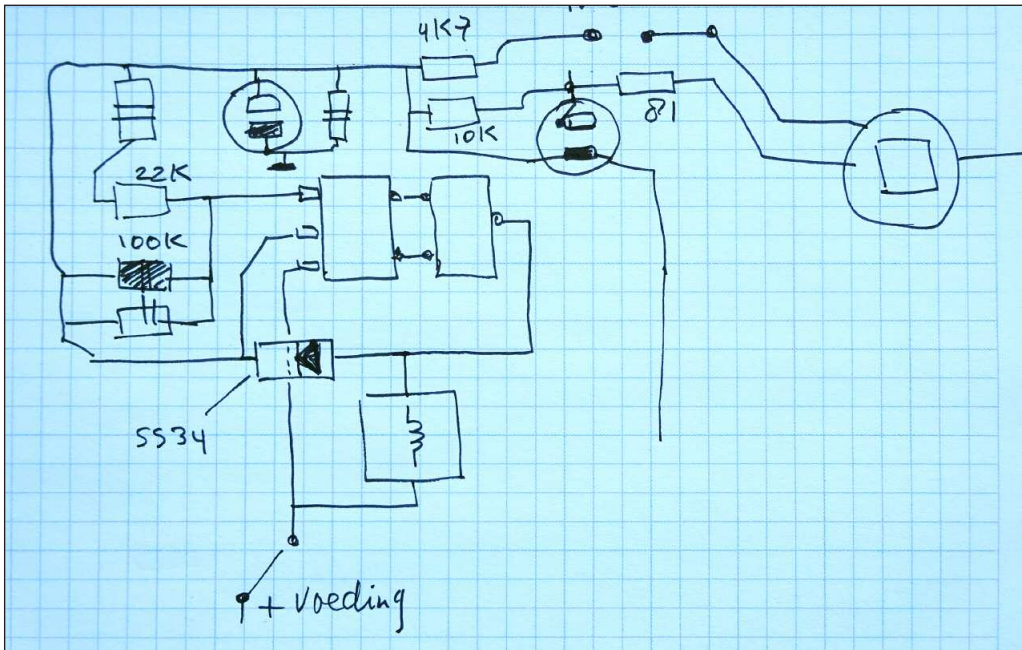 4K7
10K
81
22K
100K
SS34
+ Voeding